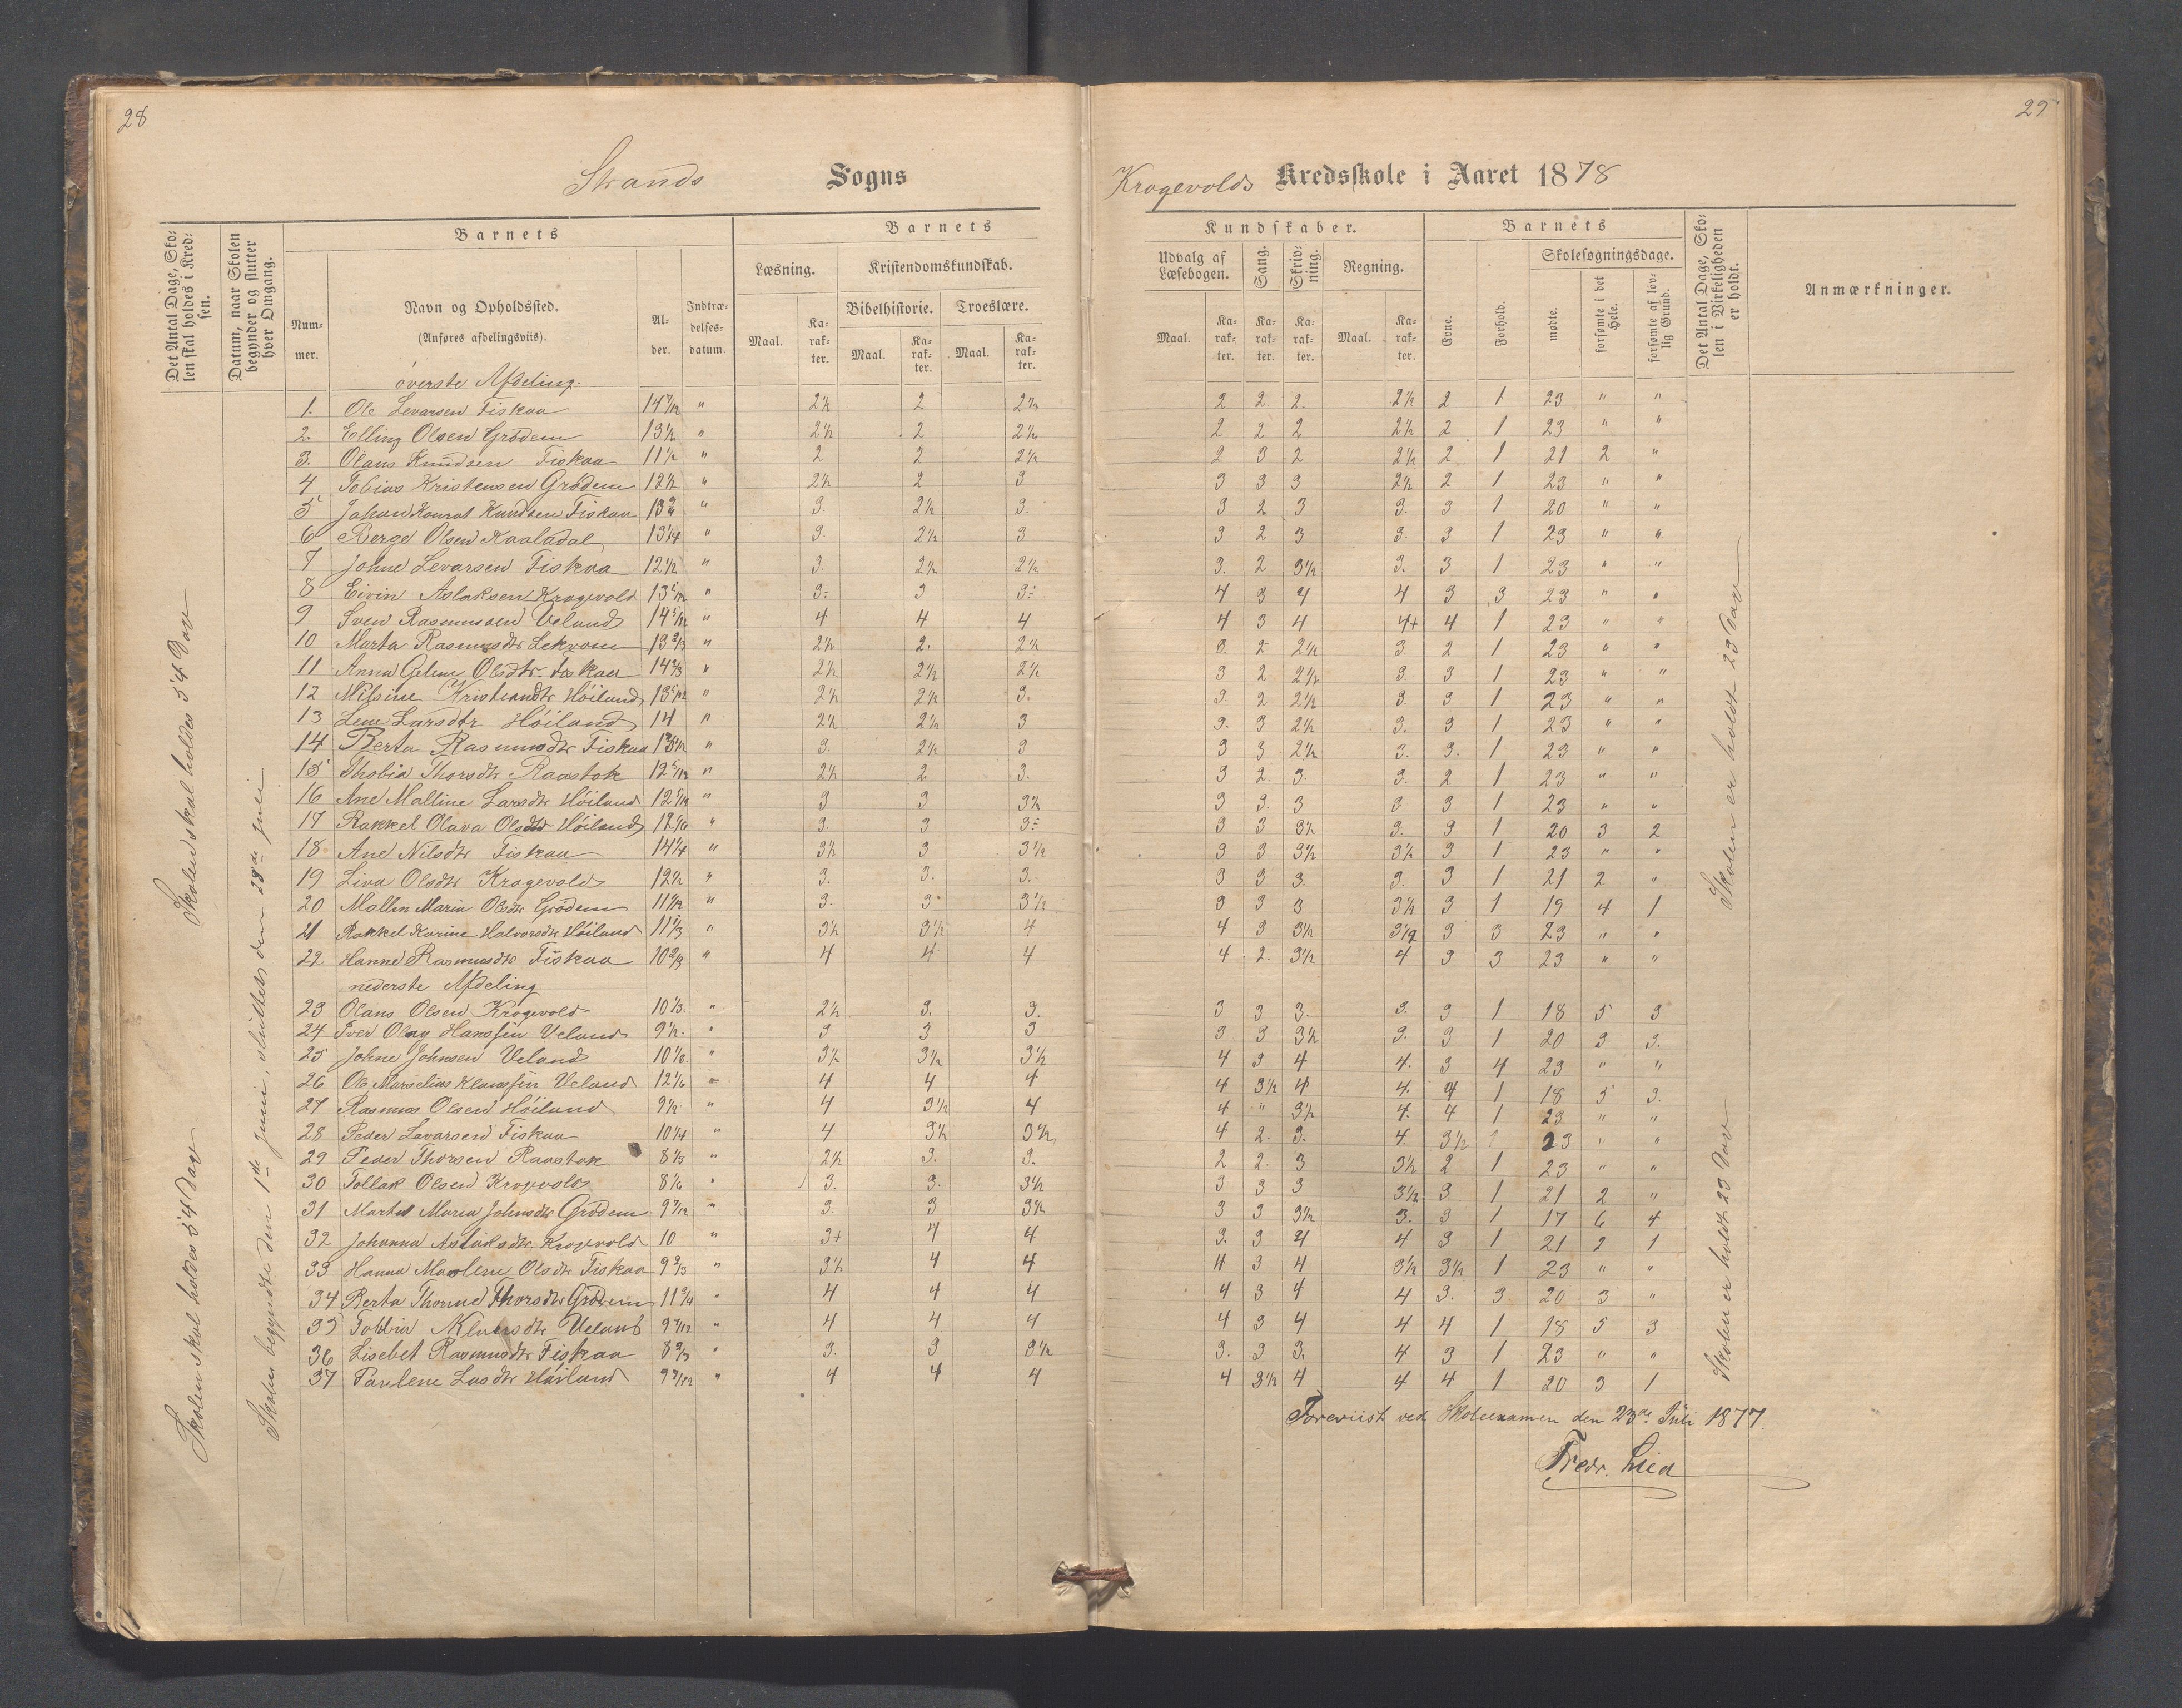 28
29
Strands Sogns
Krogevolds Kredsskole i Aaret 1878
Det Antal Dage, Skolen skal holdes i Kredsen.
Datum, naar Skolen begynder og slutter hver Omgang.
Barnets
Nummer.
Navn og Opholdssted.
(Anføres afdelingsviis).
Alder.
Indtrædelsesdatum.
Barnets
Læsning.
Maal.
Karakter.
Kristendomskundskab.
Bibelhistorie.
Maal.
Karakter.
Troeslære.
Maal.
Karakter.
Kundskaber.
Udvalg af Læsebogen.
Maal.
Karakter.
Sang.
Karakter.
Skrivning.
Karakter.
Regning.
Maal.
Karakter.
Barnets
Evne.
Forhold.
Skolesøgningsdage.
mødte.
forsømte i det Hele.
forsømte af lovlig Grund.
Det Antal Dage, Skolen i Virkeligheden er holdt.
Anmærkninger.
Skolen skal holdes 54 Dage
Skolen skal holdes 54 Dage
Skolen begyndte den 1ste Juni, sluttes den 28de Juli
Skolen er holdt 23 Dage
Skolen er holdt 23 Dage
øverste Afdeling.
1. Ole Levarsen Fiskaa 14 7/12 " 2½ 2 2½ 2 2. 2. 2½ 2 1 23 " "
2. Elling Olsen Grødem 13½ " 2½ 2 2½ 2 2 2 2½ 2 1 23 " "
3. Olaus Knudsen Fiskaa 11½ " 2 2 2½ 2 3 2 2½ 2 1 21 2 "
4 Tobias Kristensen Grødem 12½ " 2½ 2 3 3 3 3 2½ 2 1 23 " "
5 Johan Konrat Knudsen Fiskaa 13 " 3. 2½ 3. 3 2 3 3. 3 1 20 " "
6 Berge Olsen Kaaladal 13¼ " 3. 2½ 3 3 2 3 3. 3 1 23 " "
7 Johne Levarsen Fiskaa 12½ " 3. 2½ 2½ 3. 2 3½ 3. 3 1 23 " "
8 Eivin Aslaksen Krogevold 13 1/12 " 3- 3 3- 4 3 4 4 3 3 23 " "
9 Sven Rasmussen Veland 14 5/12 " 4 4 4 4 3 4 4+ 4 1 23 " "
10 Marta Rasmusdtr Lekvam 13 2/3 " 2½ 2. 2½ 3. 2 2½ 3. 2 1 23 " "
11 Anna Geline Olsdtr Fiskaa 14 2/3 " 2½ 2½ 2½ 3 2 2½ 3. 3 1 23 " "
12 Nilsine Kristiandtr Høiland 13 5/12 " 2½ 2½ 3. 3. 2 2½ 3. 3 1 23 " "
13 Lene Larsdtr Høiland 14 " 2½ 2½ 3 3. 3 2½ 3. 3 1 23 " "
14 Berta Rasmusdtr Fiskaa " 3. 2½ 3 3 3 2½ 3. 3. 1 23 " "
15 Thobia Thorsdtr Raastok 12 5/12 " 2½ 2 3. 3 2. 3. 3. 2 1 23 " "
16 Ane Malline Larsdtr Høiland 12 " 3 3 3½ 3 3. 3 3 3 1 23 " "
17 Rakkel Olava Olsdtr Høiland 12 1/6 " 3. 3 3- 3 3 3½ 3. 3 1 20 3 2
18 Ane Nilsdtr Fiskaa 14¼ " 3½ 3 3½ 3 3 3½ 3½ 3 1 23 " "
19 Liva Olsdtr Krogevold 12½ " 3. 3. 3. 3 3 3. 3. 3 1 21 2 "
20 Mallin Maria Olsdtr Grødem 11 " 3. 3. 3½ 3 3 3 3½ 3 1 19 4 1
21 Rakkel Karine Halvorsdtr Høiland 11 1/3 " 3½ 3½ 4 4 3 3½ 3½ 3 3 23 " "
22 Hanne Rasmusdtr Fiskaa 10 2/3 " 4 4 4 4 2. 3½ 4 3 3 23 " "
nederste Afdeling
23 Olaus Olsen Krogevold 10 1/3 " 2½ 3. 3. 3 3 3. 3. 3 1 18 5 3
24 Iver Olay Hanssen Veland 9½ " 3 3 3 3 3 3½ 3. 3 1 20 3 3.
25 Johne Johnsen Veland 10 1/6 " 3½ 3½ 3½ 4 3 4 4. 3 4 23 " "
26 Ole Marselius Klaussen Veland 12 1/6 " 4 4 4 4 3½ 4 4. 4 1 18 5 3.
27 Rasmus Olsen Høiland 9½ " 4 3½ 4 4 " 3½ 4. 4 1 23 " "
28 Peder Levarsen Fiskaa 10¼ " 4 3½ 3½ 4 2. 3. 4. 3½ 23 " "
29 Peder Thorsen Raastok 8 1/3 " 2½ 3. 3. 2 2. 3 3½ 2 1 23 " "
30 Tollak Olsen Krogevold 8 1/6 " 3. 3. 3½ 3 3 3 3½ 3. 1 21 2 "
31 Marta Maria Johnsdtr Grødem 9 7/12 " 3. 3 3½ 3 3 3½ 3. 3 1 17 6 4
32 Johanna Aslaksdtr Krogevold 10 " 3+ 4 4 3. 3 4 4 3 1 21 2 1
33 Hanna Marlene Olsdtr Fiskaa 9 2/3 " 3½ 4 4 4 3 4 3½ 3½ 1 23 " "
34 Berta Thorine Thorsdtr Grødem 11 3/4 " 4 4 4 4 3 4 4 3. 3 20 3 "
35 Tobbia Klausdtr Veland 9 7/12 " 4 4 4 4 3 4 4 4 1 18 5 3
36 Lisebet Rasmusdtr Fiskaa 8 2/3 " 3. 3 3½ 3. 3 3. 4 3 1 23 " "
37 Paulene Lasdtr Høiland 9 7/12 " 4 4 4 4 3½ 4 4 4 1 20 3 1
Foreviist ved Skoleexamen den 23de Juli 1877.
Fredr. Lied